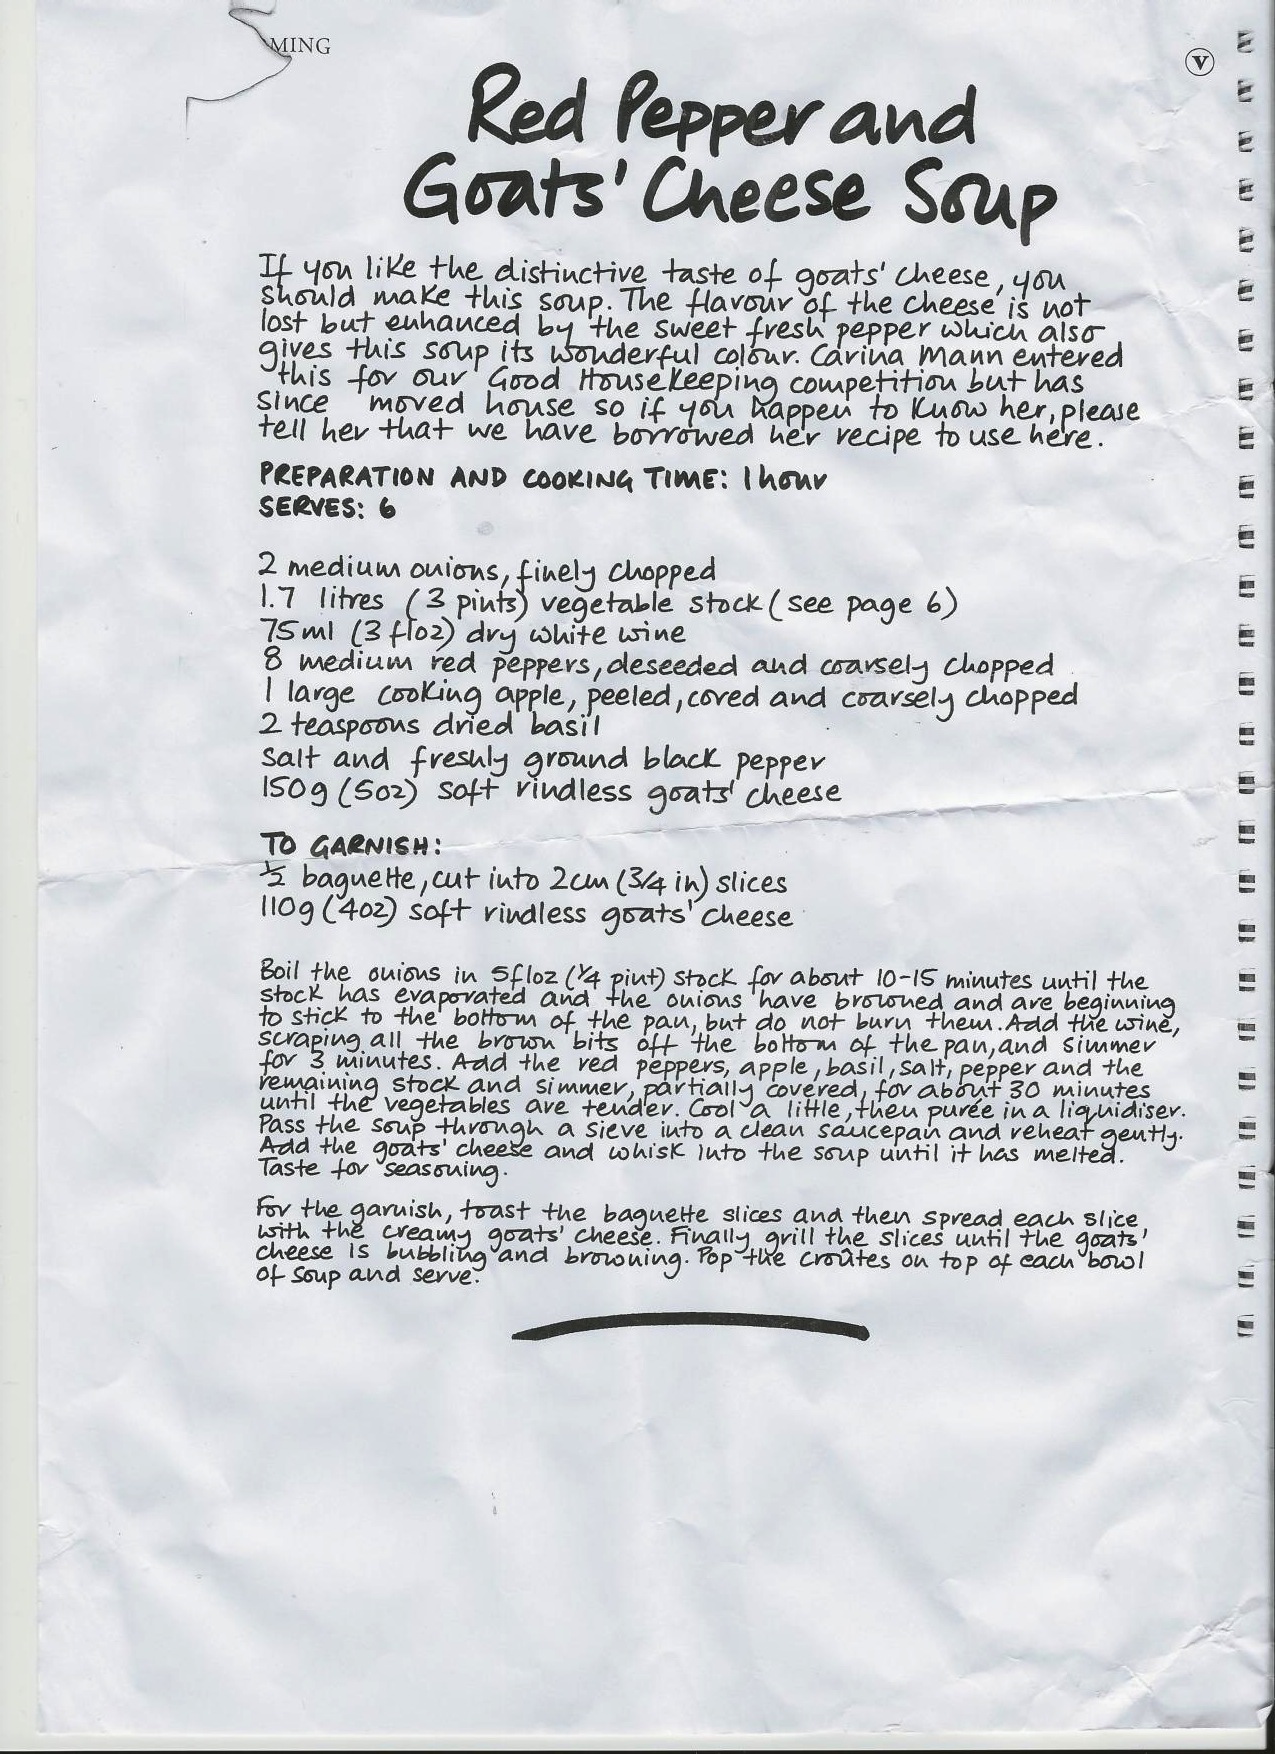 MING
V
Red Pepper and
Goats' Cheese Soup
If you like the distinctive taste of goats' cheese, you
should make this soup. The flavour of the cheese is not
lost but enhanced by the sweet fresh pepper which also
gives this soup its wonderful colour. Carina Mann entered
this for our Good Housekeeping competition but has
since moved house so if you happen to know her, please
tell her that we have borrowed her recipe to use here.
PREPARATION AND COOKING TIME: 1 hour
SERVES: 6
2 medium onions, finely chopped
1.7 litres (3 pints) vegetable stock (see page 6)
75ml (3floz) dry white wine
8 medium red peppers, deseeded and coarsely chopped
1 large cooking apple, peeled, cored and coarsely chopped
2 teaspoons dried basil
salt and freshly ground black pepper
150g (5oz) soft rindless goats' cheese
TO GARNISH:
½ baguette, cut into 2cm (3/4 in) slices
110g (4oz) soft rindless goats' cheese
Boil the onions in 5floz (¼ pint) stock for about 10-15 minutes until the
stock has evaporated and the onions have browned and are beginning
to stick to the bottom of the pan, but do not burn them. Add the wine,
scraping all the brown bits off the bottom of the pan, and simmer
for 3 minutes. Add the red peppers, apple, basil, salt, pepper and the
remaining stock and simmer, partially covered, for about 30 minutes
until the vegetables are tender. Cool a little, then purée in a liquidiser.
Pass the soup through a sieve into a clean saucepan and reheat gently.
Add the goats' cheese and whisk into the soup until it has melted.
Taste for seasoning.
For the garnish, toast the baguette slices and then spread each slice
with the creamy goats' cheese. Finally grill the slices until the goats'
cheese is bubbling and browning. Pop the croûtes on top of each bowl
of soup and serve.